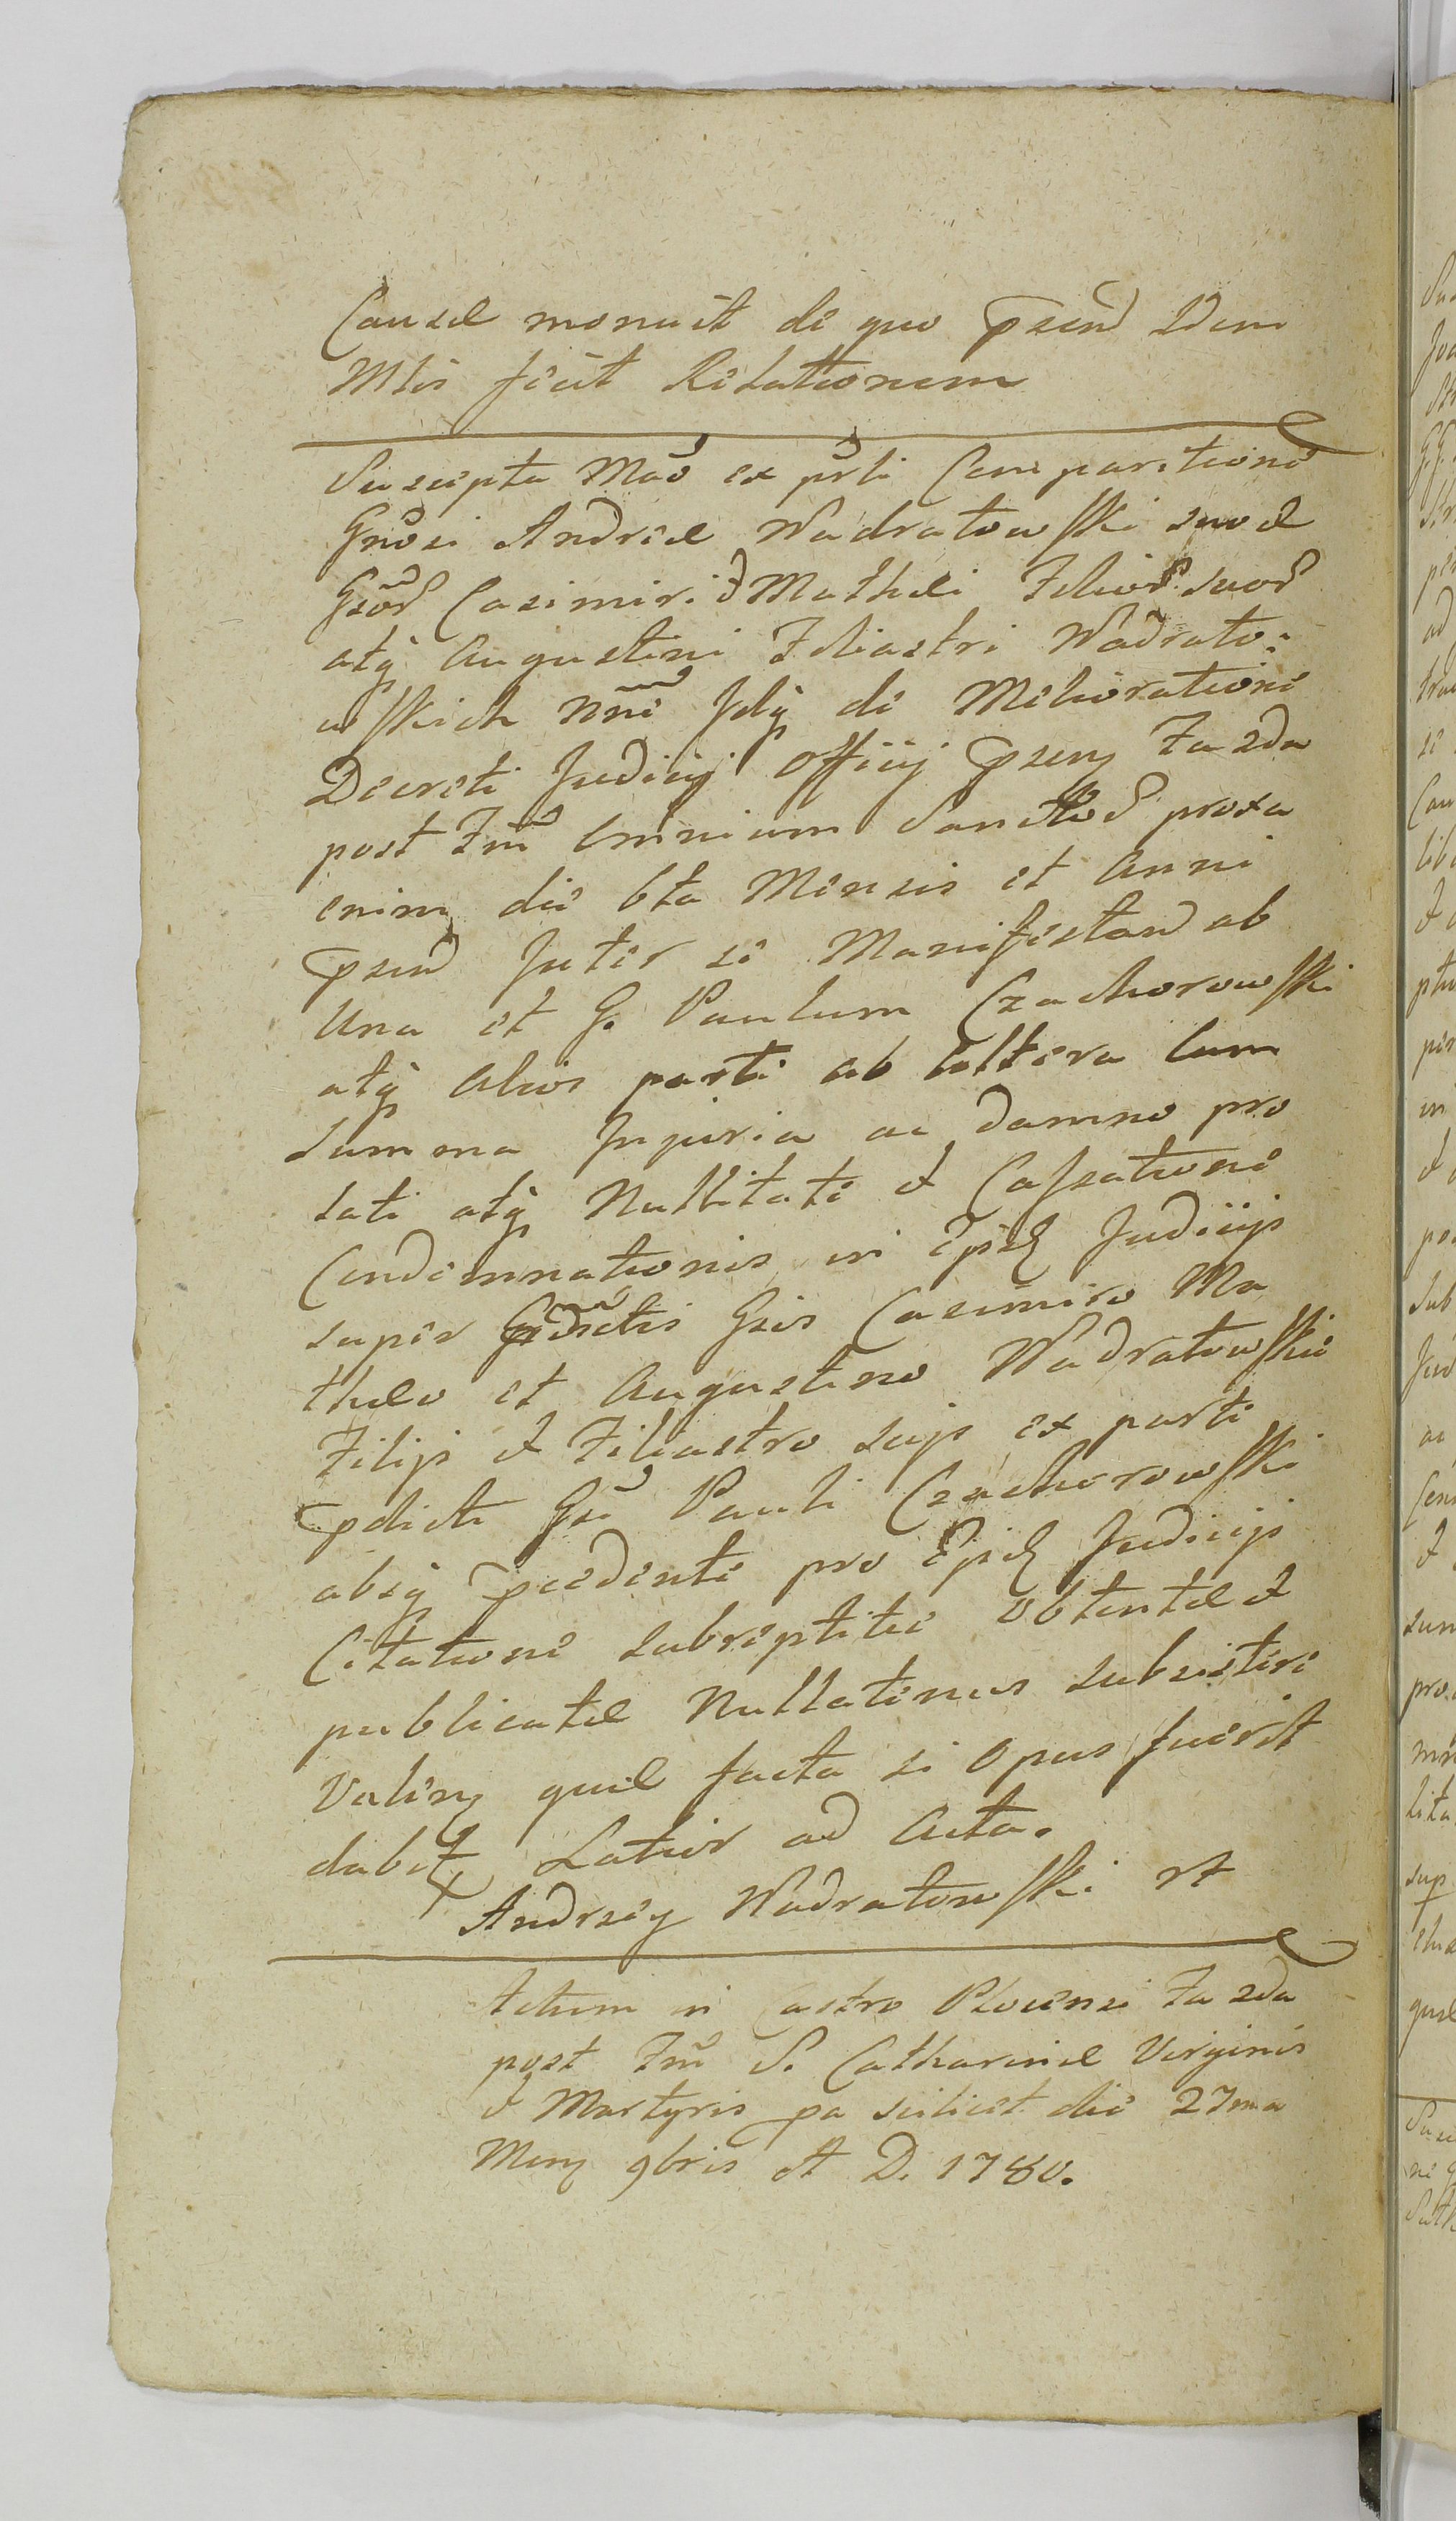 Causæ monuit de quo præsend Idem
Mlis fecit Relationem
Suscepta Mão ex prli Comparitione
Gnosi Andreæ Wądratowski suo et
Gsor̃ Casimiri & Mathei Filior̃ suor̃
atq Augustini Filiastri Wadrato:
wskich nnê Idq de Melioratione
Decreti Judicij Officij præsen Fa 2da
post Fm̃ Omnium Sanctor̃ proxa
enim die 6ta Mensis et Anni
præsen Inter se Manifestand ab
Una et G. Paulum Czachorowski
atq Alios parte ab Altera Cum
Summa Injuria ac damno pro
lati atq Nullitate et Cassatione
Condemnationis in Ejsd Judicijs
super prædictis Gsis Casimiro Ma
theo et Augustino Wadratowskie
Filijs et Filiastro suis ex parte
pdicti Gsi Pauli Czachorowski
absq præcedente pro Ejsd Judicijs
Citatione subreptitie obtentæ et
publicatæ Nullatenus subsistere
Valen quæ facta si Opus fuerit
dabit Latior ad Acta.
Andrzey Wadratowski rt
Actum in Castro Plocensi Fa 2da
post Fm̃ S. Catharinæ Virginis
et Martyris pa scilicet die 27ma
Mens 9bris A D. 1780.